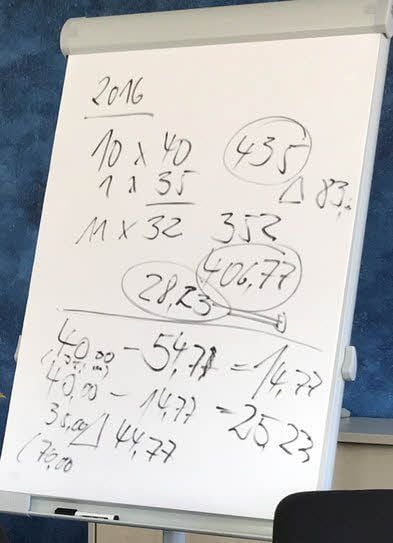 2016
10 x 40 435
1 x 35 Δ 83,-
11 x 32 352
406,77
28,23
40,00 - 54,77 = 14,77
40,00 - 14,77 = 25,23
35,00 Δ 44,77
(70,00